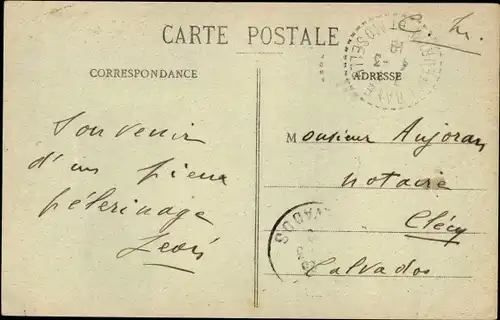 CARTE POSTALE
C. M.
CORRESPONDANCE
ADRESSE
MOSELLE
Souvenir
d'un pieux
pélerinage
Monsieur Anjoran
notaire
Clécy
Calvados
CALVADOS